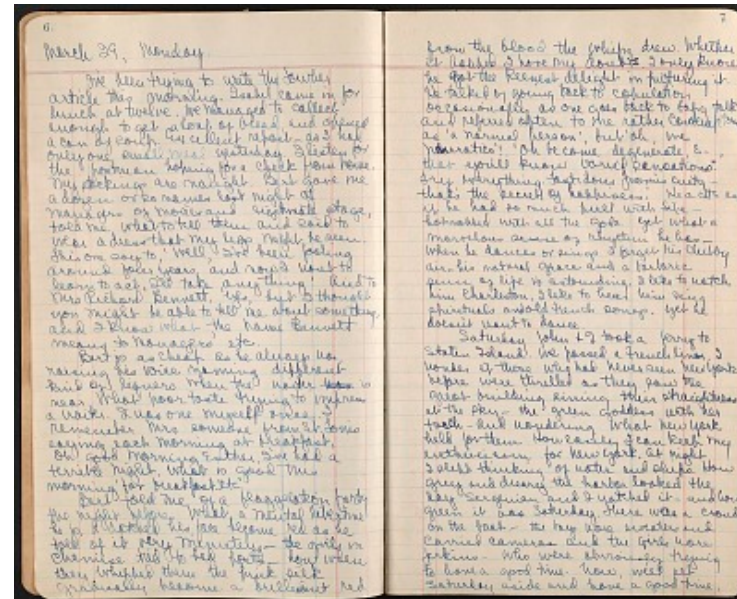 6.
March 29, Monday.
I've been trying to write the Fowler
article this morning. Isabel came in for
lunch at twelve. We managed to collect
enough to get a loaf of bread and opened
a can of soup. Excellent repast – as I had
only one small meal yesterday. I listen for
the postman nothing for a check from
My pickings are naught. Bert gave me
a dozen or so names last night of
managers of movies and legitimate stage,
told me what to tell them and said to
wear a dress that my legs might be seen.
This one say to, 'Well I've been fooling
around for years, and now I want to
learn to act. I'll take anything'. And to
Mrs Richard Bennett, 'Yes, but I thought
you might be able to tell me about something
and I know what the name Bennett
means to managers' etc.
Bert is as cheap as he always was
raising his voice naming different
kind of liquors when the waiter is
near. What poor taste trying to impress
a waiter. I was one myself once. I
remember Mrs someone from St
saying each morning at breakfast,
'Oh good morning Esther, I've had a
terrible night. What is good this
morning for breakfast'
Bert told me of a party
the night before. What a mental
he is. I watched his face become red as he
told of it
chemise tied to bed posts – how
they whipped them the pink silk
gradually became a brilliant red
7.
from the blood the whips drew. Whether
it happened I have my doubts I only know
he got the keenest delight in picturing it.
He talked of going back to copulation
occasionally as one goes back to baby talk
and referred often to me rather
as 'a normal person', but 'oh, we
neurotics'! 'Oh become degenerate, E–
then you'll know varied sensations'
Try everything that does
that's the secret of happiness. He acts as
if he had so much pull with life –
hobnobbed with all the gods. Yet what a
marvelous sense of rhythm he has –
when he dances or sings I forget his chubby
air. His natural grace and
sense of life is astounding. I like to watch
him Charleston, I like to hear him sing
spirituals and old French songs. Yet he
doesn't want to dance.
Saturday John & I took a ferry to
Staten Island. We passed a French liner. I
wonder if those who had never seen New York
before were thrilled as they saw the
great building their straightness
at the sky – the green goddess with her
torch – and wondering what New York
held for them. How easily I can keep my
enthusiasm for New York. At night
I slept thinking of water and ships. How
grey and dreary the harbor looked the
day and I watched it – and how
green it was Saturday. There was a crowd
on the boat – the boys wore sweaters and
carried cameras and the girls wore
– who were obviously trying
to have a good time. Now, we'll set
Saturday aside and have a good time.